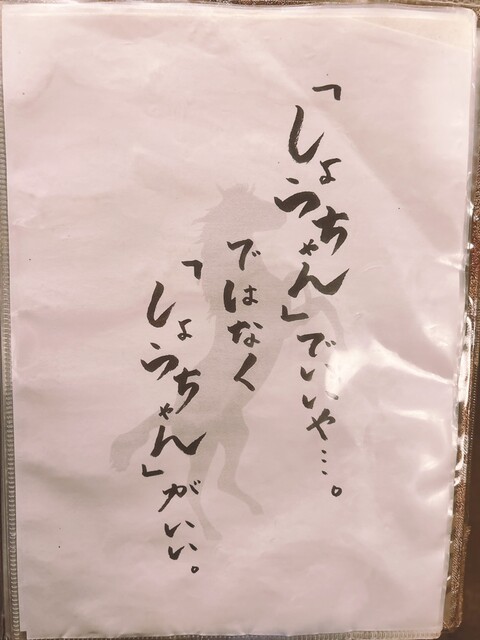 「しょうちゃん」でいいや…。
ではなく
「しょうちゃん」がいい。